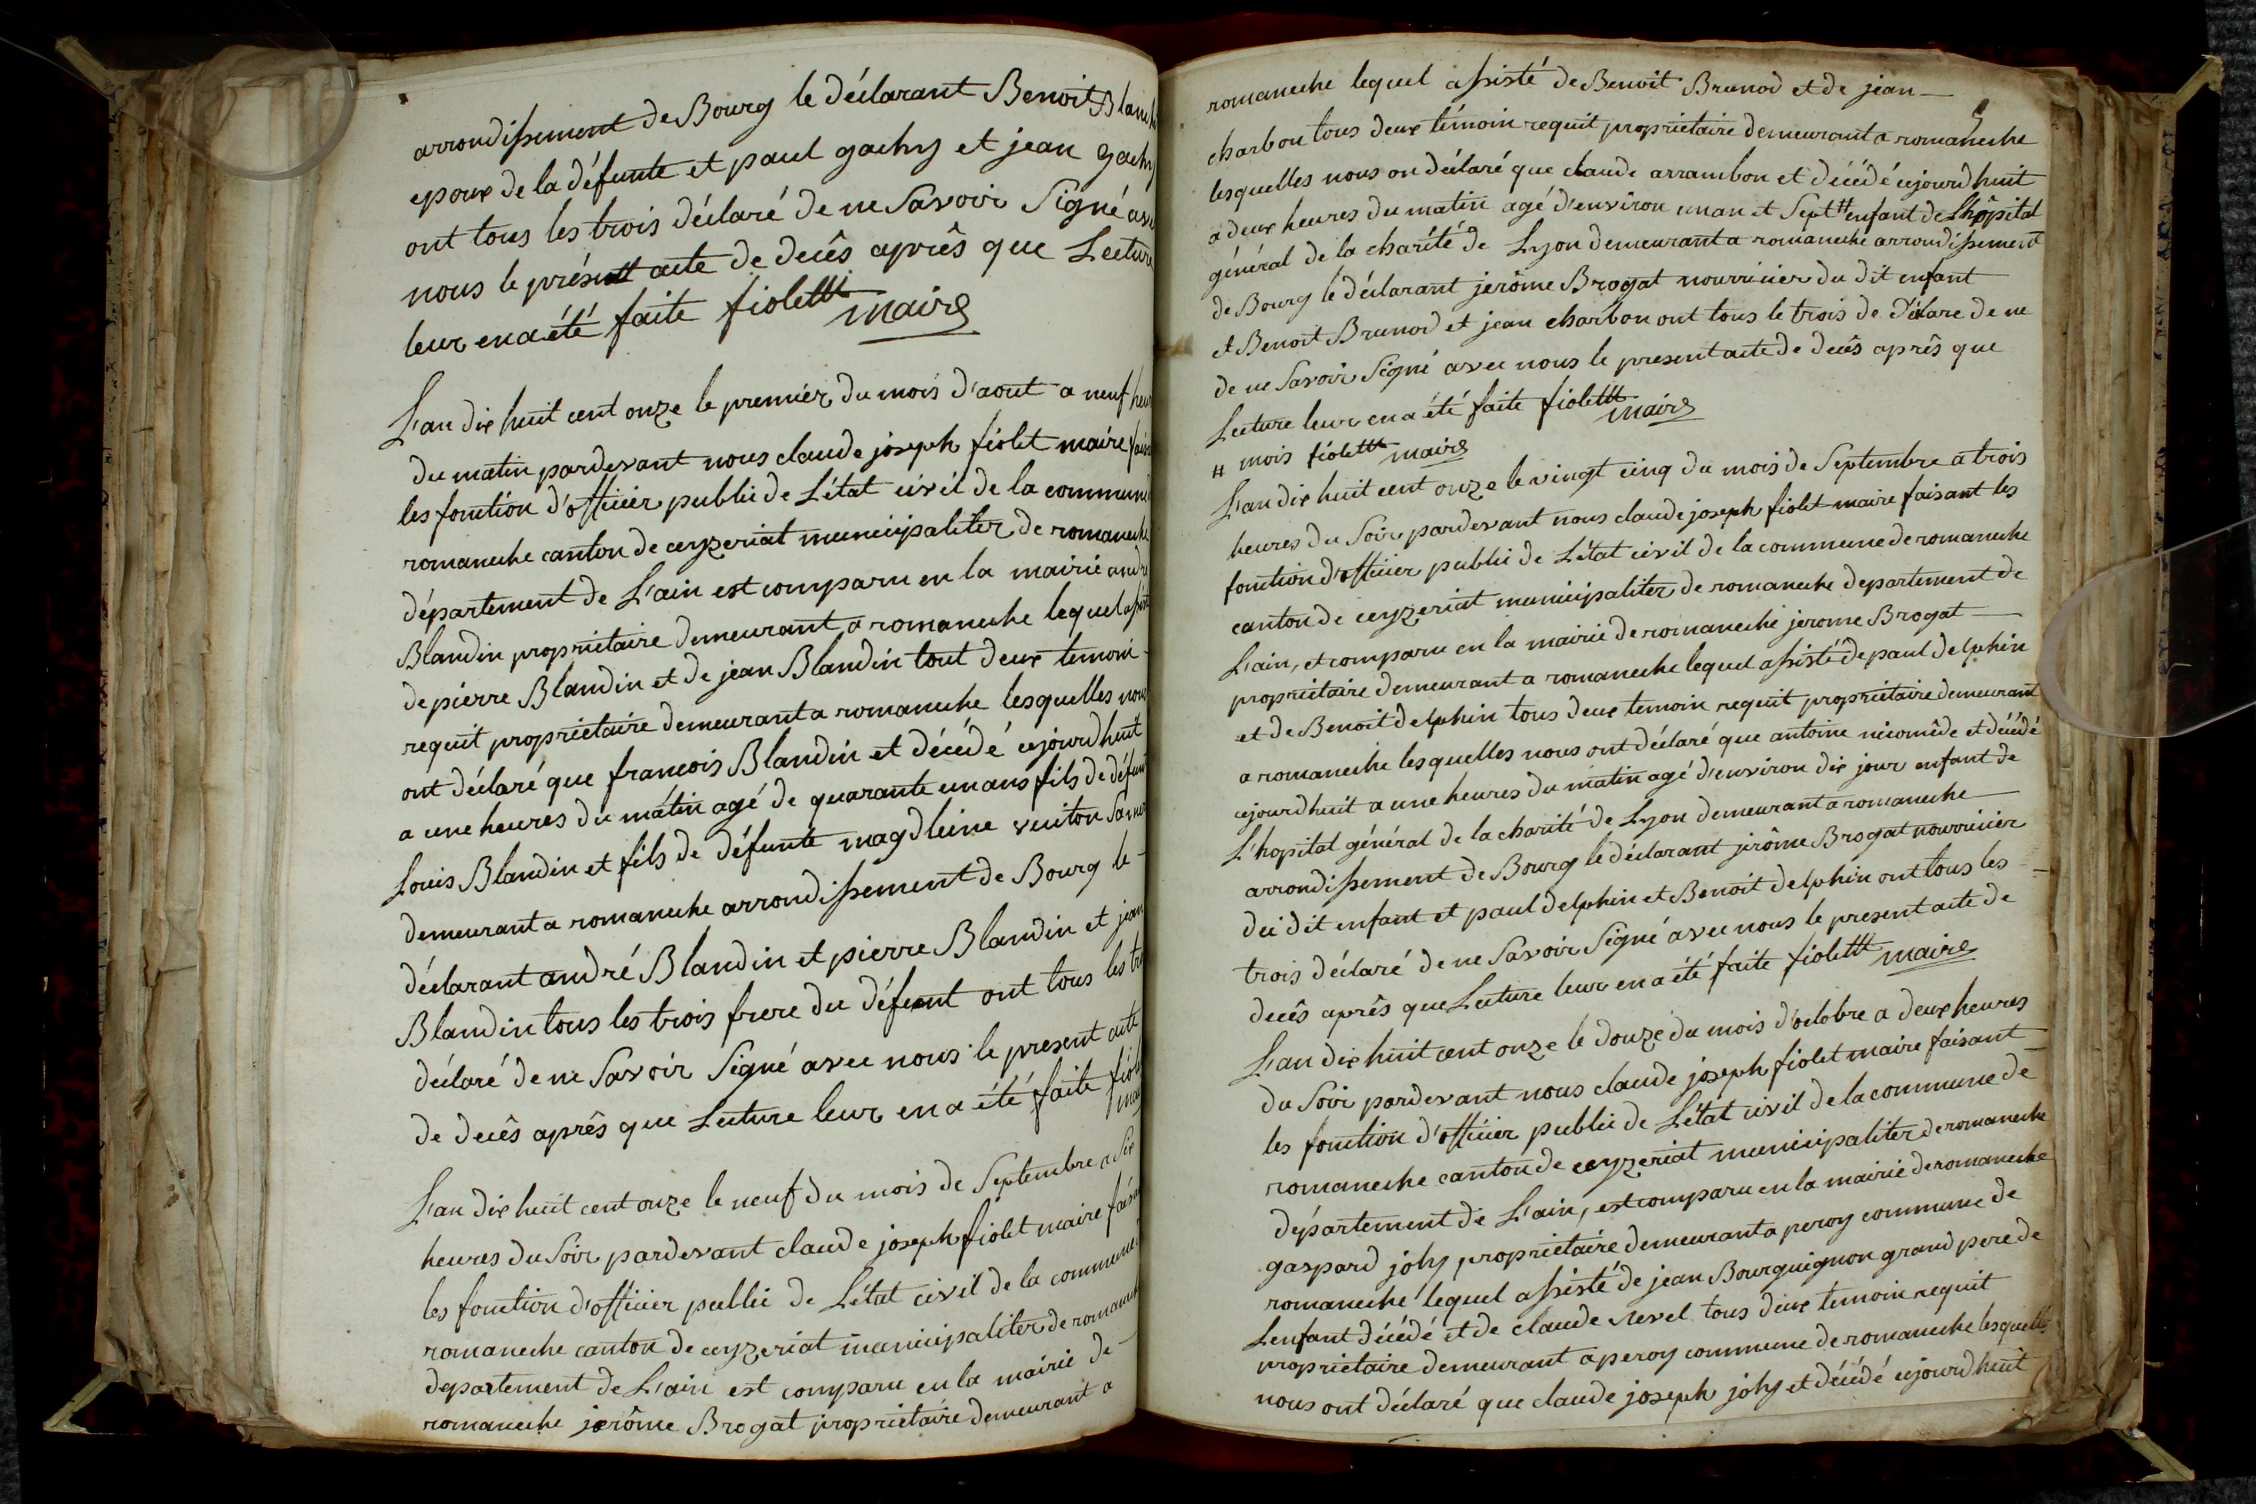 arrondissement de Bourg le déclarant Benoit
epoux de la défunte et paul gachy et jean gachy
ont tous les trois déclaré de ne Savoir Signé avec
nous le présent acte de decês aprês que Lecture
leur en a été faite fiolet maire
L'an dix huit cent onze le premier du mois d'aout a neuf heur
du matin pardevant nous claude joseph fiolet maire
les fonction d'officier public de L'état civil de la commune
romaneche canton de ceyzeriat municipaliter de romaneche
département de L'ain est comparu en la mairie andré
Blandin propriétaire demeurant a romaneche lequel
de pierre Blandin et de jean Blandin tout deux temoin
requit propriétaire demeurant a romaneche lesquelles nous
ont déclaré que francois Blandin et décédé cejourdhuit
a une heures du matin agé de quarante un ans fils de défunt
Louis Blandin et fils de défunte magdleine
demeurant a romaneche arrondissement de Bourg le
déclarant andré Blandin et pierre Blandin et jean
Blandin tous les trois frere du défunt ont tous les
déclaré de ne Savoir Signé avec nous le present acte
de decês aprês que Lecture leur en a été faite
L'an dix huit cent onze le neuf du mois de Septembre a Six
heures du Soir pardevant claude joseph fiolet maire
les fonction d'officier public de L'état civil de la commune
romaneche canton de ceyzeriat municipaliter de romaneche
departement de L'ain est comparu en la mairie de
romaneche jerôme Brogat propriétaire demeurant a
romaneche lequel assisté de Benoit Brunod et de jean
charbon tous deux témoin requit propriétaire demeurant a romaneche
lesquelles nous on déclaré que claude arrambon et décédé cejourdhuit
a deux heures du matin agé d'environ un an et Sept # enfant de Lhôpital
général de la charité de Lyon demeurant a romaneche arrondissement
de Bourg le déclarant jerôme Brogat nourricier du dit enfant
et Benoit Brunod et jean charbon ont tous le trois de déclare de ne
de ne Savoir Signé avec nous le present acte de decês aprês que
Lecture leur en a été faite fiolet maire
# mois fiolet maire
L'an dix huit cent onze le vingt cinq du mois de Septembre a trois
heures du Soir pardevant nous claude joseph fiolet maire faisant les
fonction d'officier public de L'état civil de la commune de romaneche
canton de ceyzeriat municipaliter de romaneche departement de
L'ain, et comparu en la mairie de romaneche jerome Brogat
propriétaire demeurant a romaneche lequel assisté de paul delphin
et de Benoit delphin tous deux temoin requit propriétaire demeurant
a romaneche lesquelles nous ont déclaré que antoine nicomêde et décédé
cejourdhuit a une heures du matin agé d'environ dix jour enfant de
L'hopital général de la charité de Lyon demeurant a romaneche
arrondissement de Bourg le déclarant jerôme Brogat nourricier
du dit enfant et paul delphin et Benoit delphin ont tous les
trois déclaré de ne Savoir Signé avec nous le present acte de
decês aprês que Lecture leur en a été faite fiolet maire
L'an dix huit cent onze le douze du mois d'octobre a deux heures
du Soir pardevant nous claude joseph fiolet maire faisant
les fonction d'officier public de L'état civil de la commune de
romaneche canton de ceyzeriat municipaliter de romaneche
département de L'ain, est comparu en la mairie de romaneche
gaspard joly, propriétaire demeurant a peroy commune de
romaneche lequel assisté de jean Bourguignon grand pere de
Lenfant décédé et de claude revel tous deux témoin requit
propriétaire demeurant a peroy commune de romaneche lesquelle
nous ont déclaré que claude joseph joly et décédé cejourdhuit